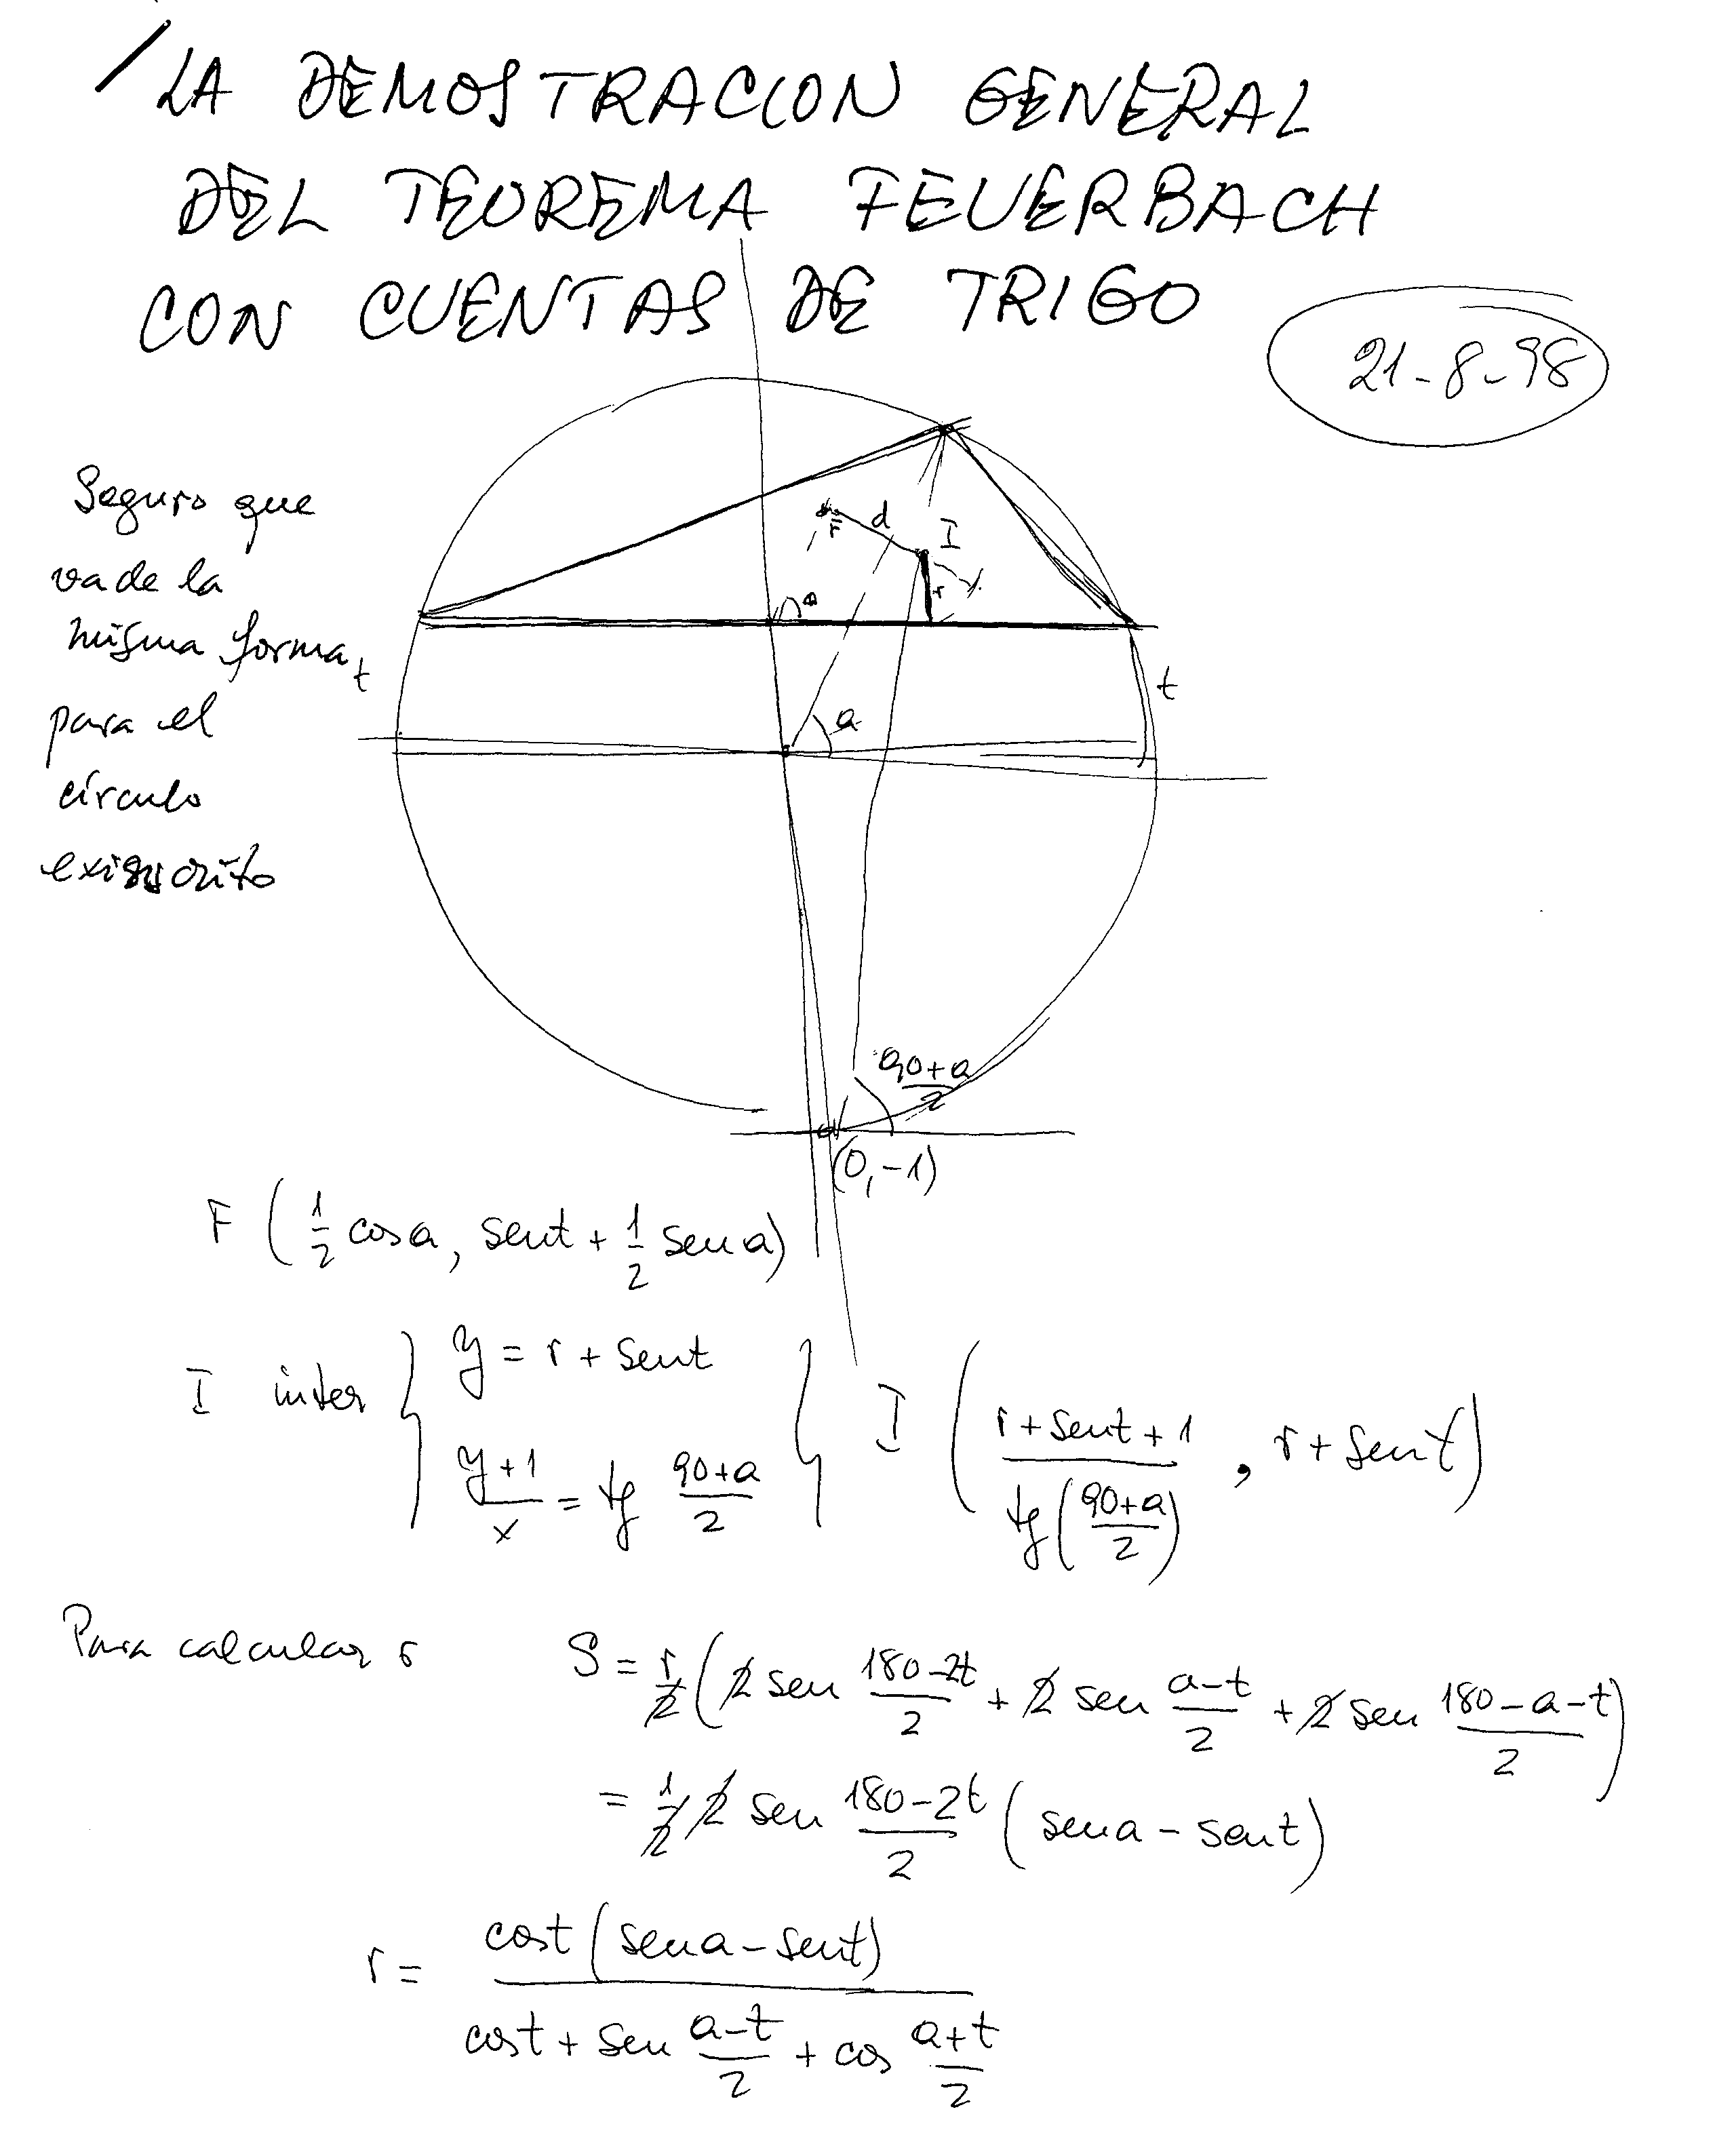 LA DEMOSTRACION GENERAL
DEL TEOREMA FEUERBACH
CON CUENTAS DE TRIGO
21-8-98
Seguro que
va de la
misma forma
para el
círculo
exinscrito
F
d
I
r
a
t
t
a
90+a/2
(0,-1)
F (1/2 cos a, sen t + 1/2 sen a)
I inter { y = r + sen t
(y+1)/x = tg (90+a)/2 } I ( (r + sen t + 1)/tg((90+a)/2) , r + sen t)
Para calcular r S = r/2 (2 sen (180-2t)/2 + 2 sen (a-t)/2 + 2 sen (180-a-t)/2)
= 1/2 2 sen (180-2t)/2 (sen a - sen t)
r = cos t (sen a - sen t) / (cos t + sen (a-t)/2 + cos (a+t)/2)